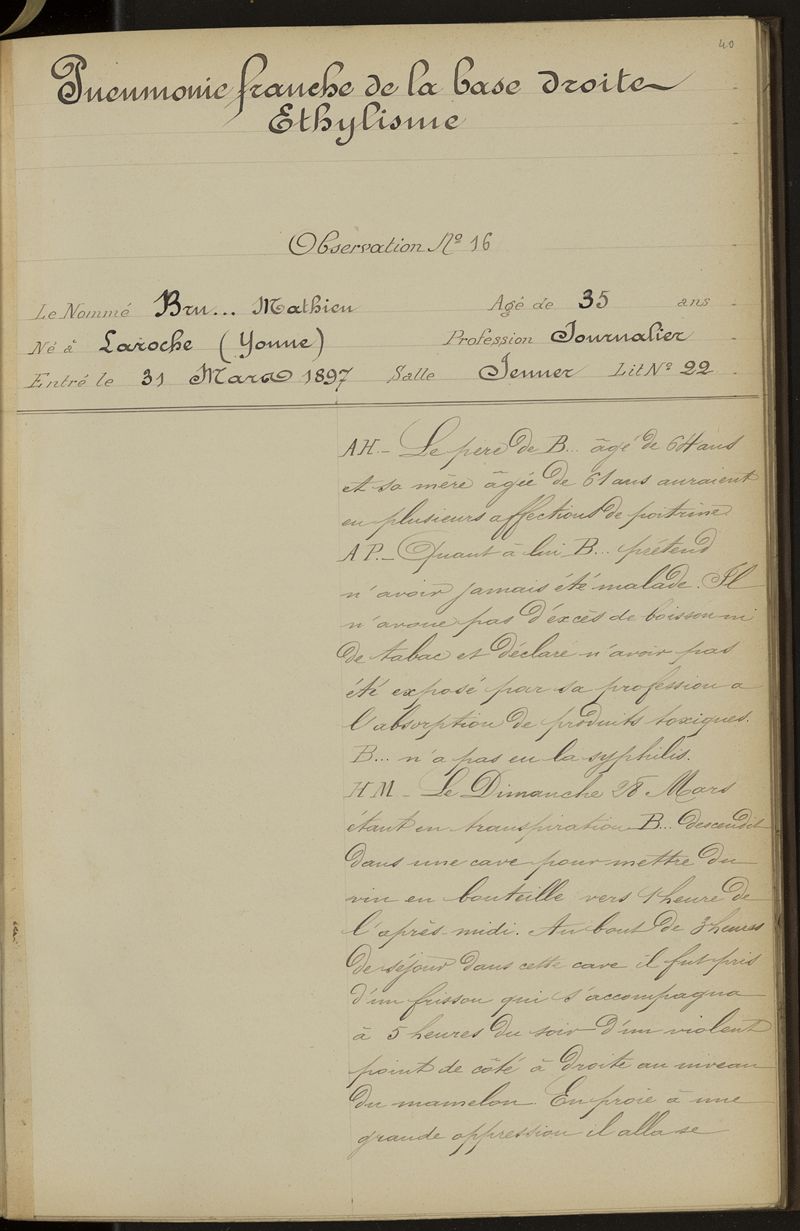 40
Pneumonie franche de la base droite
Ethylisme
Observation Nº 16
Le Nommé Bru... Mathieu Agé de 35 ans
Né à Laroche (Yonne) Profession Journalier
Entré le 31 Mars 1897 Salle Jenner Lit Nº 22
AH.- Le père de B... âgé de 64 ans
et sa mère âgée de 61 ans auraient
eu plusieurs affections de poitrine
AP.- Quant à lui B... prétend
n'avoir jamais été malade. Il
n'avoue pas d'excès de boisson ni
de tabac et déclare n'avoir pas
été exposé par sa profession a
l'absorption de produits toxiques.
B... n'a pas eu la syphilis.
HM - Le Dimanche 28 Mars
étant en transpiration B... descendit
dans une cave pour mettre du
vin en bouteille vers 1 heure de
l'après-midi. Au bout de 3 heures
de séjour dans cette cave il fut pris
d'un frisson qui s'accompagna
à 5 heures du soir d'un violent
point de côté à droite au niveau
du mamelon. En proie à une
grande oppression il alla se